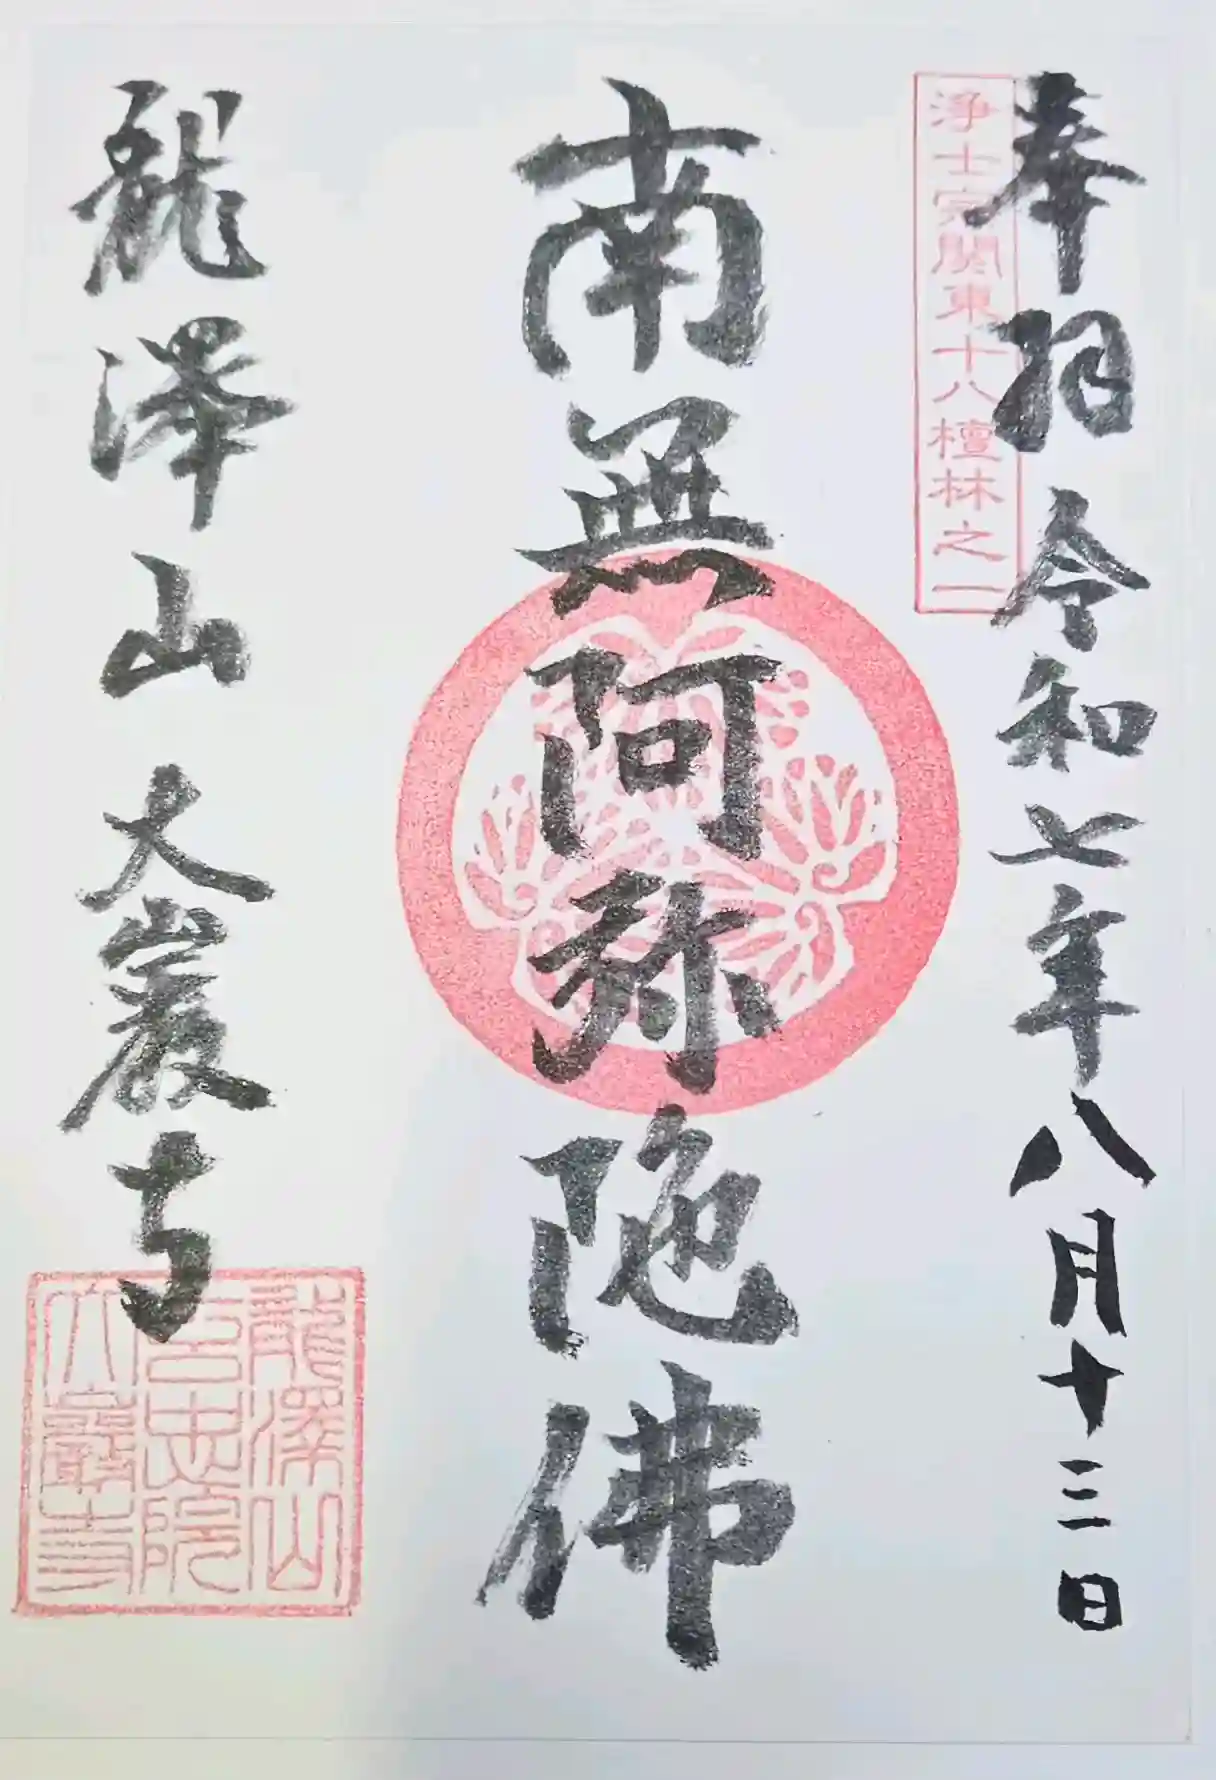 奉拝 令和七年八月十三日
浄土宗関東十八檀林之一
南無阿弥陀佛
龍澤山 大巖寺
龍澤山
玄忠院
大巖寺